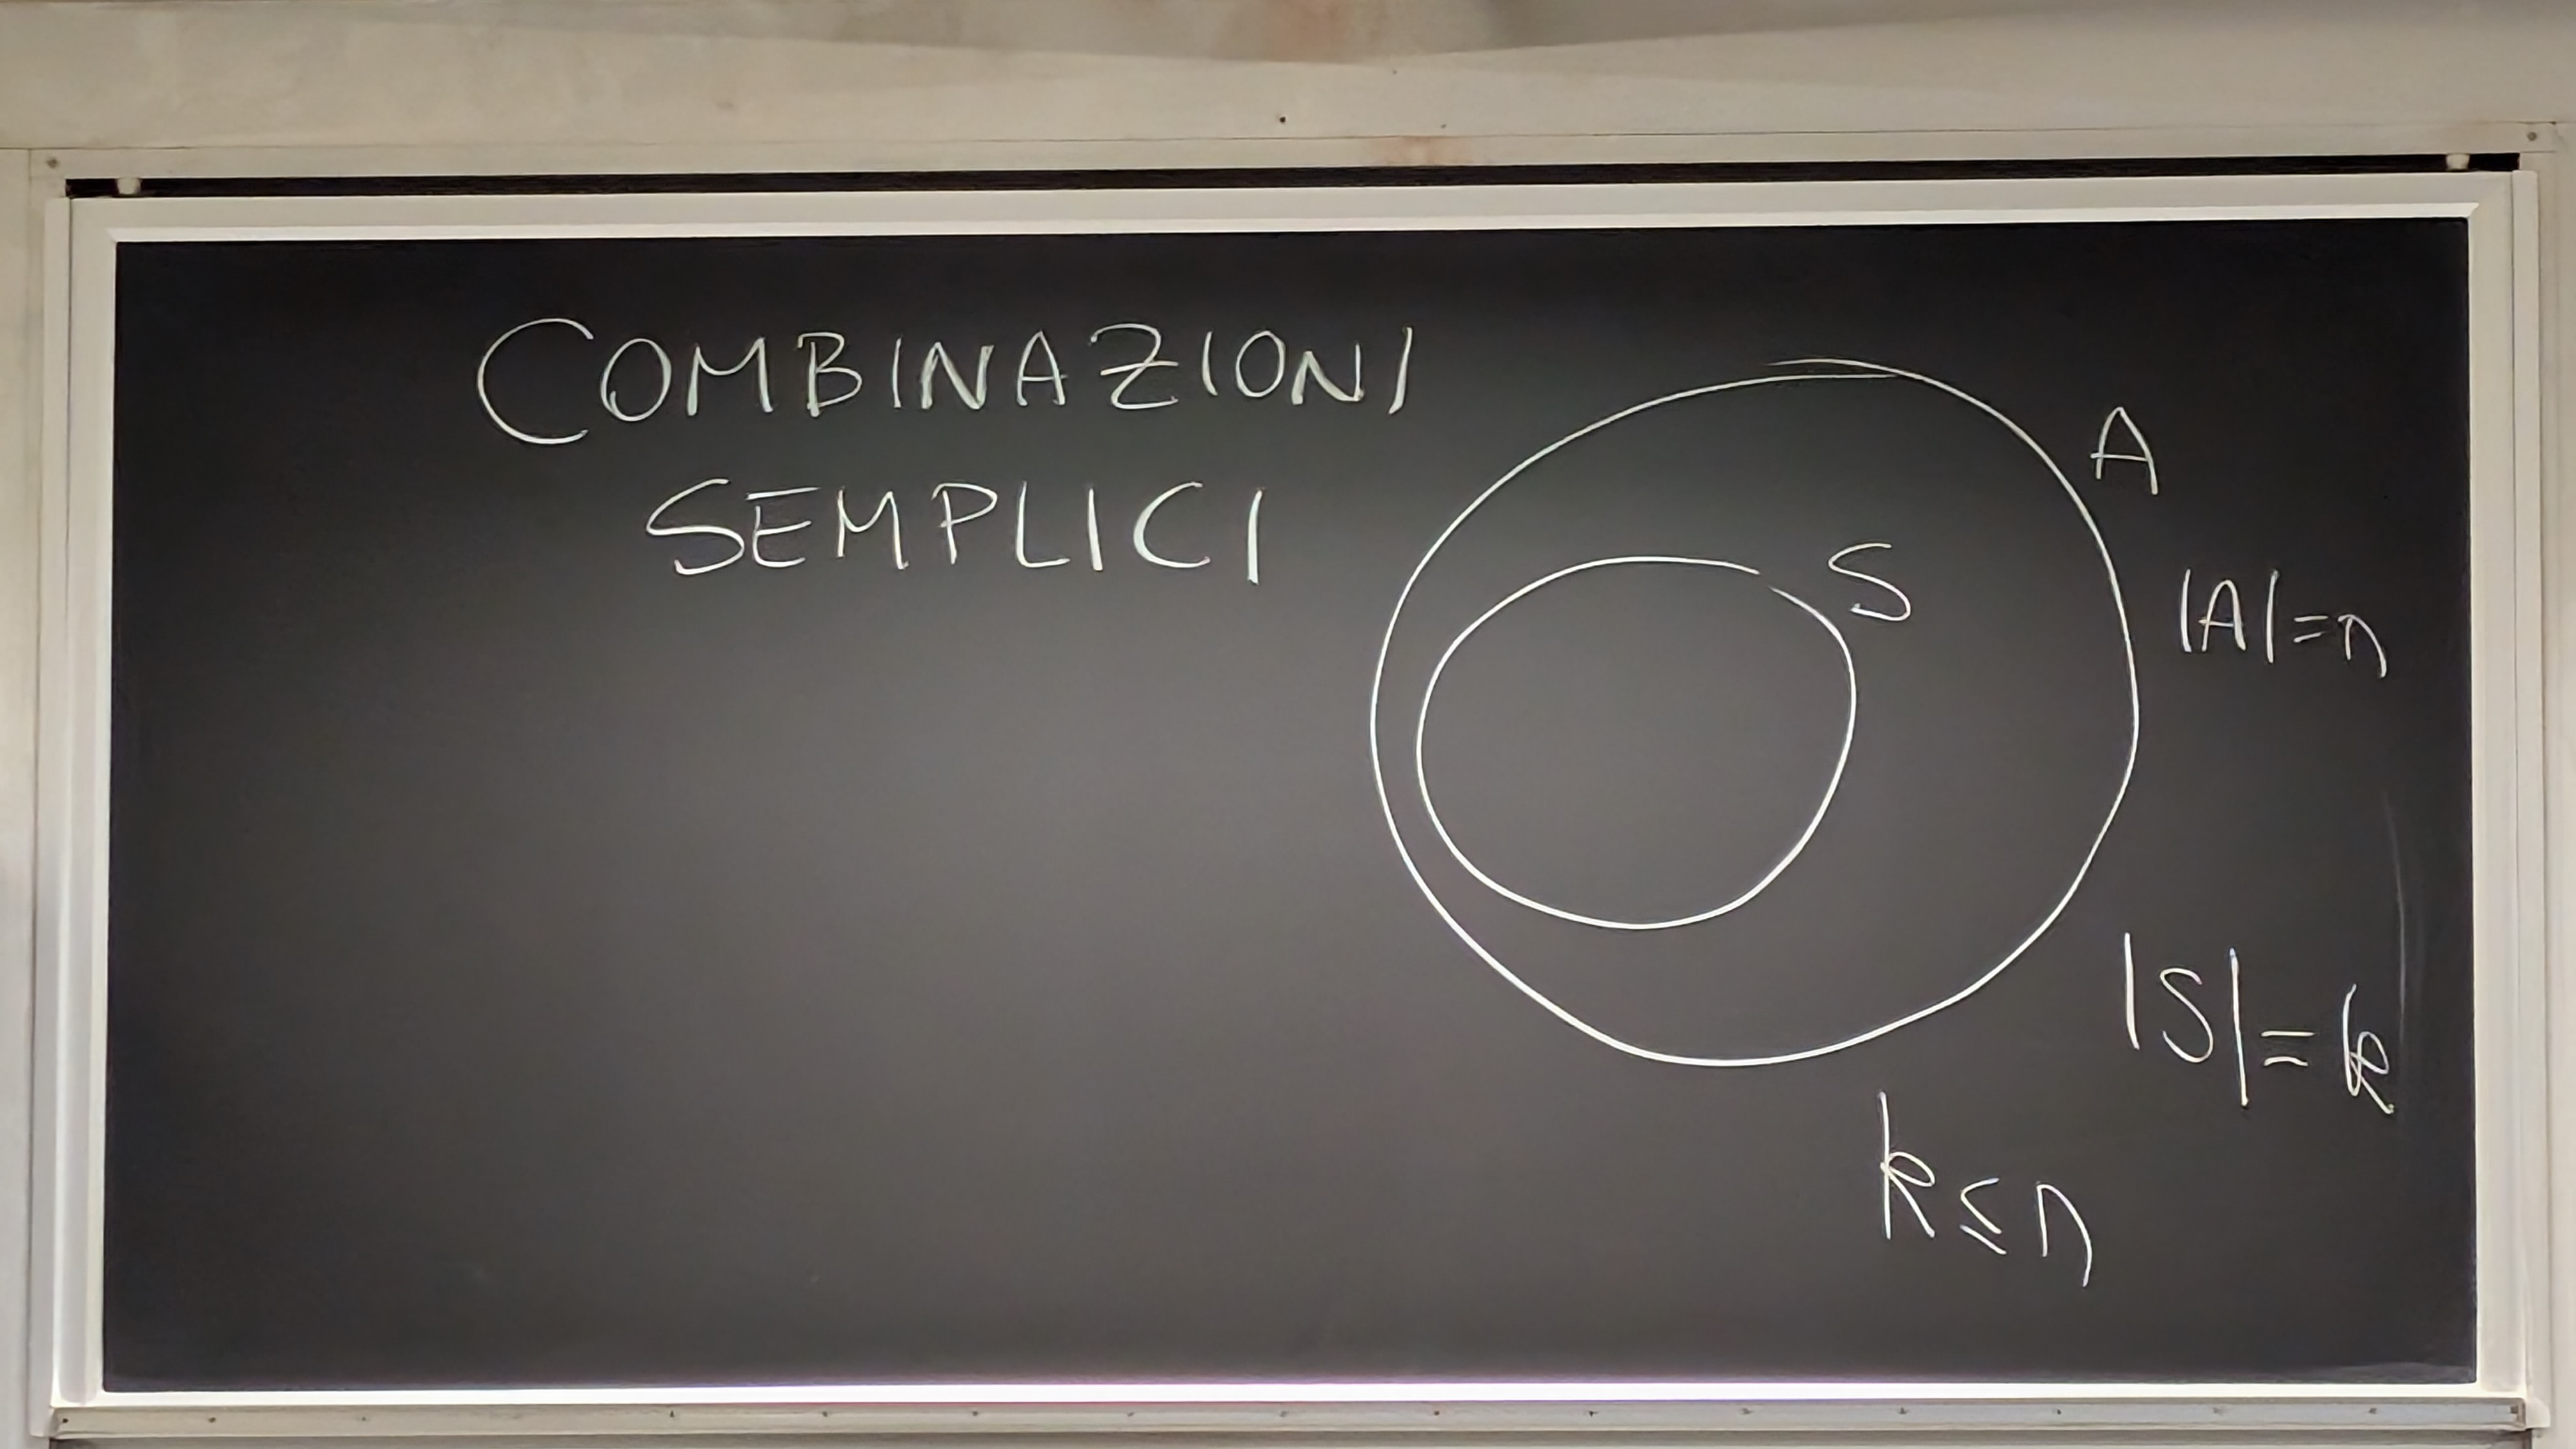 COMBINAZIONI
SEMPLICI
A
S
|A|=n
|S|=k
k≤n